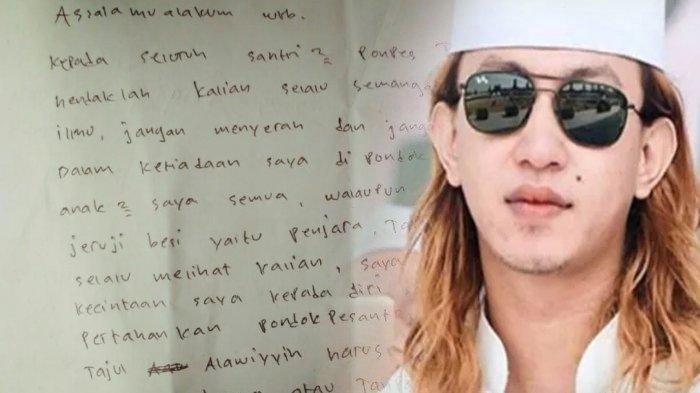 Assalamualakum wrb.
kepada seluruh santri 2 ponpes T
hendaklah kalian selalu semanga
ilmu, jangan menyerah dan jang
Dalam ketiadaan saya di pondok
anak 2 saya semua, walaupun
jeruji besi yaitu penjara, Ta
selalu melihat kalian, saya
kecintaan saya kepada diri
pertahankan pondok pesantr
Tajul Alawiyyin harus
atau Tan